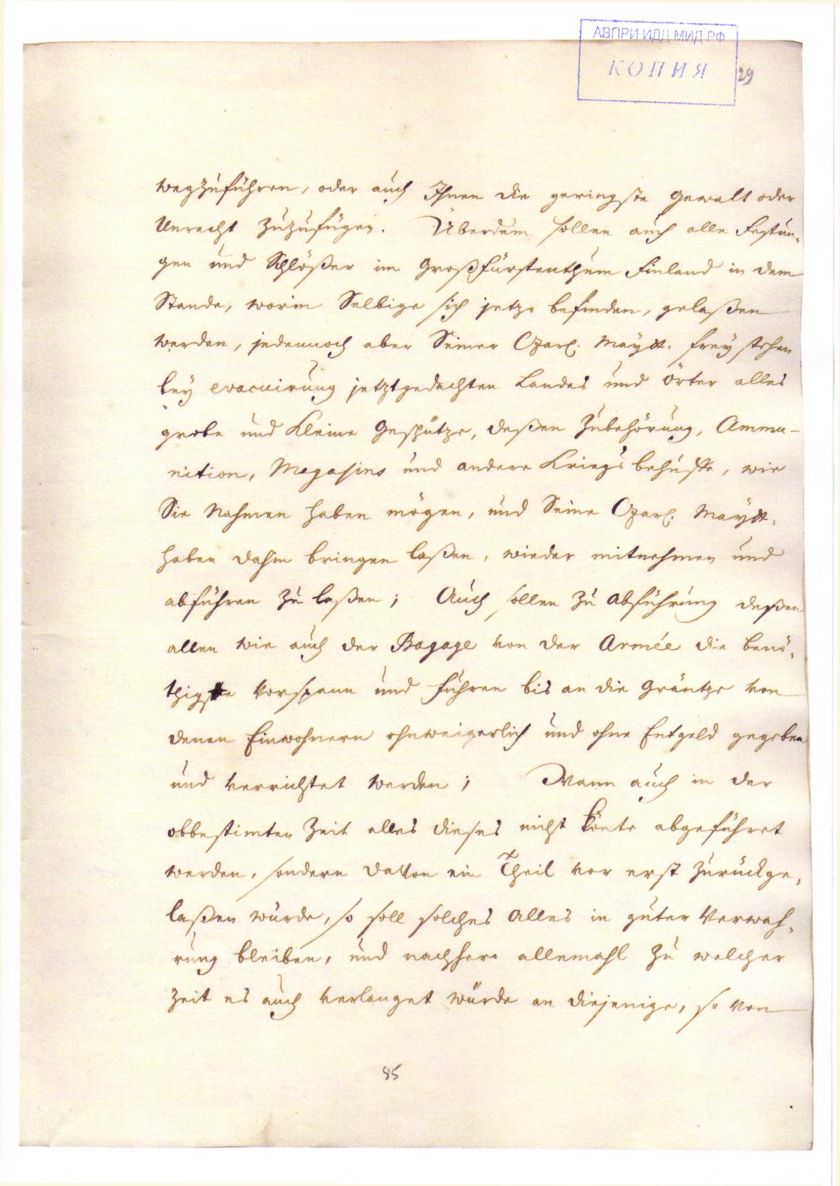 АВПРИ ИДД МИД РФ
КОПИЯ
29
wegzuführen, oder auch Ihnen die geringste Gewalt oder
Unrecht zuzufügen. Überdem sollen auch alle Festun-
gen und Schlößer im Großfürstenthum Finland in dem
Stande, worin Selbige sich jetzo befinden, gelaßen
werden, jedennoch aber Seiner Czarl. Maytt. frey stehen
bey evacuirung jetztgedachten Landes und Örter alles
grobe und kleine Geschütze, deßen Zubehörung, Ammu-
nition, Magasins und andere Kriegsbehuffe, wie
Sie Nahmen haben mögen, und Seine Czarl. Maytt.
haben dahin bringen laßen, wieder mitnehmen und
abführen zu laßen; Auch sollen zu Abführung deßen
allen wie auch der Bagage von der Armée die benö-
thigte Vorspann und Führen bis an die Gräntze von
denen Einwohnern ohnweigerlich und ohne Entgeld gegeben
und verrichtet werden; Wann auch in der
obbestimten Zeit alles dieses nicht könte abgeführet
werden, sondern davon ein Theil vor erst zurückge-
laßen würde, so soll solches Alles in guter Verwah-
rung bleiben, und nachhero allemahl zu welcher
Zeit es auch verlanget würde an diejenige, so von
85